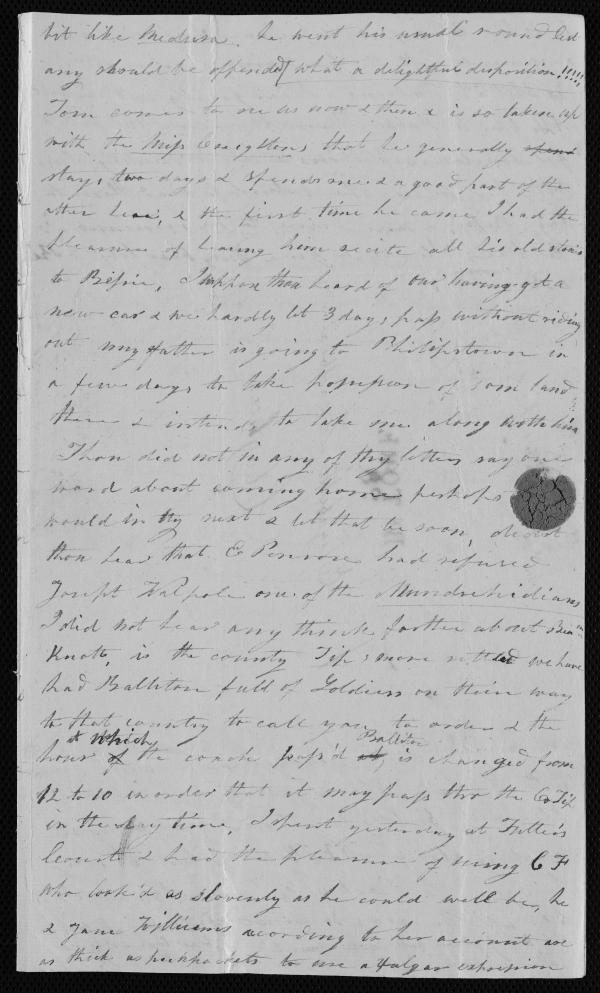 bit like Medusa. he went his usual round lest
any should be offended what a delightful disposition!!!!!
Tom comes to see us now & then & is so taken up
with the Miss that he generally spend
stays two days & spends me & a good part of the
other here, & the first time he came I had the
pleasure of hearing him recite all his old stories
to Bessie, I suppose thou heard of our having got a
new car & we hardly let 3 days pass without riding
out my father is going to Philipstown in
a few days to take possession of some land
there & intends to take me along with him
Thou did not in any of thy letters say one
word about coming home perhaps
would in thy next & let that be soon, didst
thou hear that E Penrose had refused
Joseph Walpole one of the
I did not hear any think farther about
Knott, is the county Tip: more settled we have
had Ballitore full of Soldiers on their way
to that country to call you to order & the
hour at which of the coach pass'd Ballitore is changed from
12 to 10 in order that it may pass thro the Co Tip
in the day time, I spent yesterday at Fuller's
Court & had the pleasure of seeing C F
who look'd as slovenly as he could well be, he
& Jane Williams according to her account are
as thick as pickpockets to use a vulgar expression